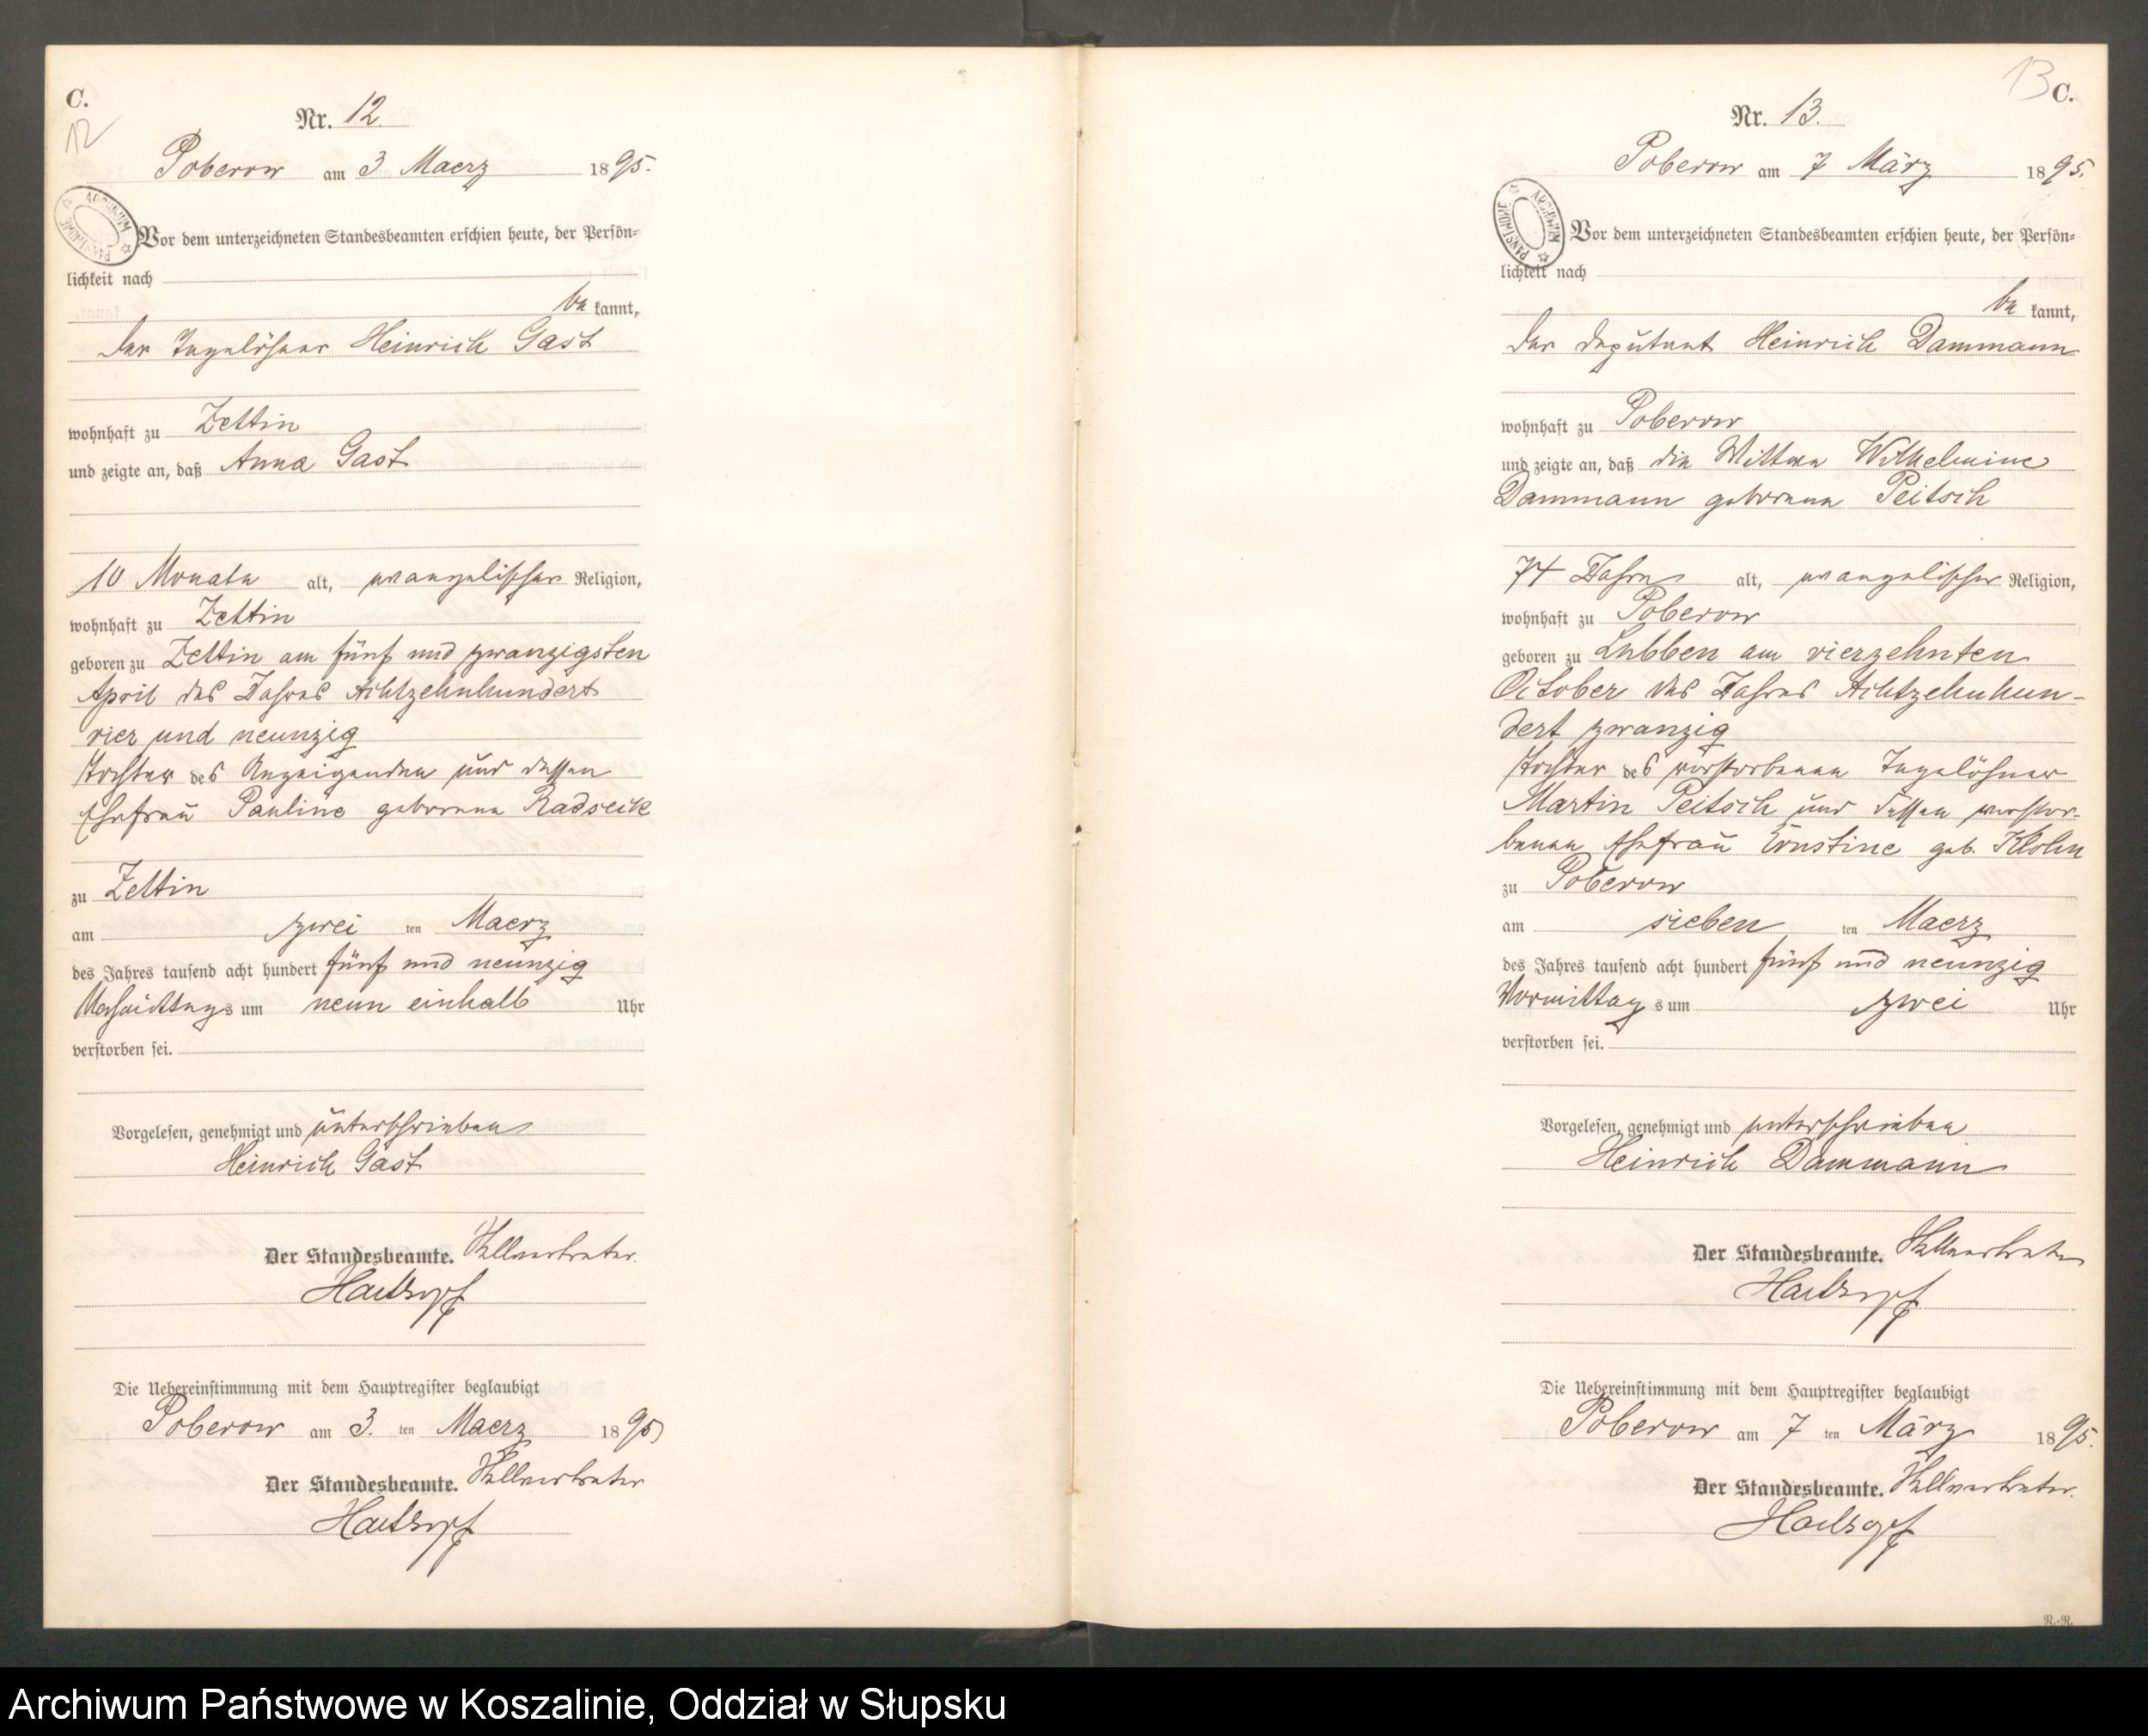 C.
12
Nr. 12.
Poberow am 3 Maerz 1895.
ARCHIWUM PAŃSTWOWE
Vor dem unterzeichneten Standesbeamten erschien heute, der Persön=
lichkeit nach
be kannt,
der Tagelöhner Heinrich Gast
wohnhaft zu Zettin
und zeigte an, daß Anna Gast
10 Monate alt, evangelischer Religion,
wohnhaft zu Zettin
geboren zu Zettin am fünf und zwanzigsten
April des Jahres Achtzehnhundert
vier und neunzig
Tochter des Anzeigenden und dessen
Ehefrau Pauline geborene Radseck
zu Zettin
am zwei ten Maerz
des Jahres tausend acht hundert fünf und neunzig
Nachmittags um neun einhalb Uhr
verstorben sei.
Vorgelesen, genehmigt und unterschrieben
Heinrich Gast
Der Standesbeamte. Stellvertreter.
Die Uebereinstimmung mit dem Hauptregister beglaubigt
Poberow am 3. ten Maerz 1895
Der Standesbeamte. Stellvertreter
13
C.
Nr. 13.
Poberow am 7 März 1895.
ARCHIWUM PAŃSTWOWE
Vor dem unterzeichneten Standesbeamten erschien heute, der Persön=
lichkeit nach
be kannt,
der Deputant Heinrich Dammann
wohnhaft zu Poberow
und zeigte an, daß die Wittwe Wilhelmine
Dammann geborene Peitsch
74 Jahre alt, evangelischer Religion,
wohnhaft zu Poberow
geboren zu Lubben am vierzehnten
October des Jahres Achtzehnhun-
dert zwanzig
Tochter des verstorbenen Tagelöhner
Martin Peitsch und dessen verstor-
benen Ehefrau Ernstine geb.
zu Poberow
am sieben ten Maerz
des Jahres tausend acht hundert fünf und neunzig
Vormittag s um zwei Uhr
verstorben sei.
Vorgelesen, genehmigt und unterschrieben
Heinrich Dammann
Der Standesbeamte. Stellvertreter
Die Uebereinstimmung mit dem Hauptregister beglaubigt
Poberow am 7 ten März 1895.
Der Standesbeamte. Stellvertreter.
R.-R.
Archiwum Państwowe w Koszalinie, Oddział w Słupsku